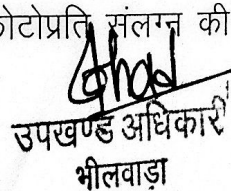 ोटोप्रति संलग्न की
उपखण्ड अधिकारी
भीलवाड़ा